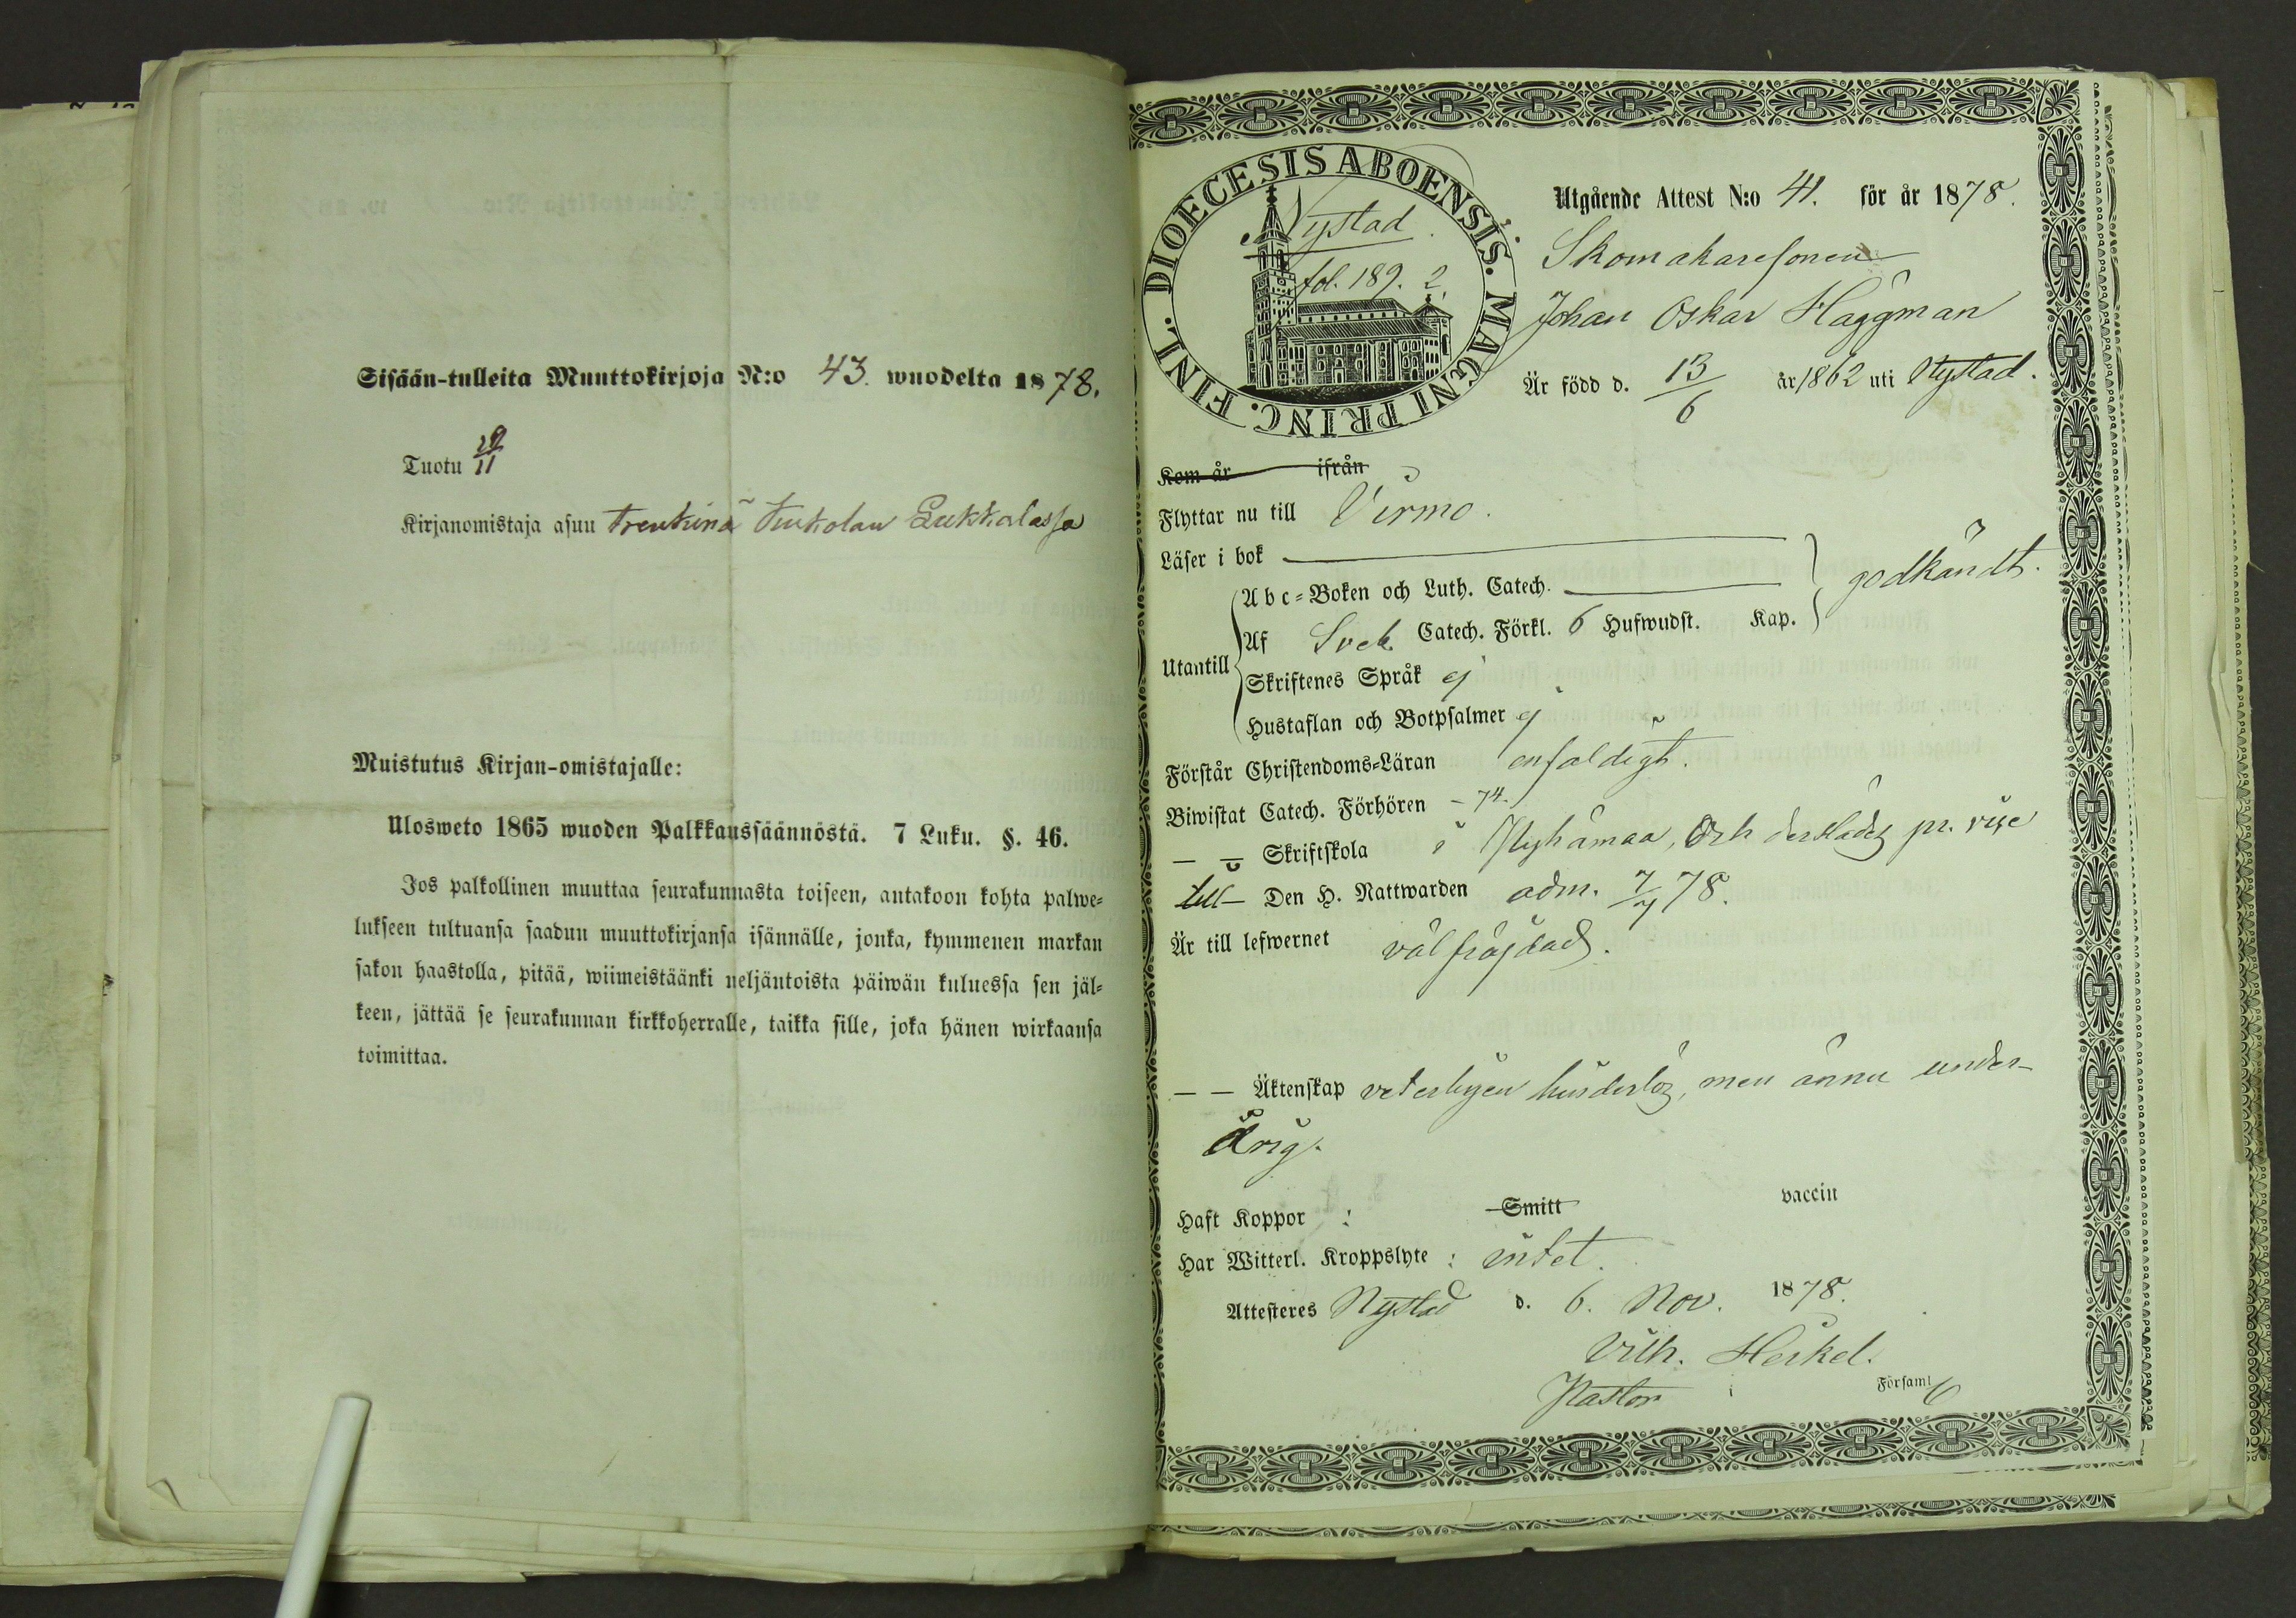 Sisään-tulleita Muuttokirjoja N:o 43. wuodelta 1878.
Tuotu 29/11
Kirjanomistaja asuu trenkinä Lukkalassa
Muistutus Kirjan-omistajalle:
Ulosweto 1865 wuoden Palkkaussäännöstä. 7 Luku. §. 46.
Jos palkollinen muuttaa seurakunnasta toiseen, antakoon kohta palwe-
lukseen tultuansa saadun muuttokirjansa isännälle, jonka, kymmenen markan
sakon haastolla, pitää, wiimeistäänki neljäntoista päiwän kuluessa sen jäl-
keen, jättää se seurakunnan kirkkoherralle, taikka sille, joka hänen wirkaansa
toimittaa.
DIOECESIS ABOENSIS. MAGNI PRINC. FINL.
Nystad
fol. 189. 2.
Utgående Attest N:o 41. för år 1878.
Skomakaresonen
Johan Oskar Häggman
Är född d. 13/6 år 1862 uti Nystad.
Kom år ifrån
Flyttar nu till Virmo.
Läser i bok
Utantill
Abc-Boken och Luth. Catech.
Af Sveb. Catech. Förkl. 6 Hufwudst. Kap. godkändt.
Skriftenes Språk ej
Hustaflan och Botpsalmer ej
Förstår Christendoms-Läran enfaldigt.
Biwistat Catech. Förhören -74.
— — Skriftskola i Pyhämaa, och derstädes pr. vice
till Den H. Nattwarden adm. 7/7 78.
Är till lefwernet välfräjdad.
— — Äktenskap veterligen hinderlös, men ännu under-
årig.
Haft Koppor : Smitt vaccin
Har Witterl. Kroppslyte : intet.
Attesteres Nystad d. 6. Nov. 1878.
Vilh. Heikel.
Pastor i Församl